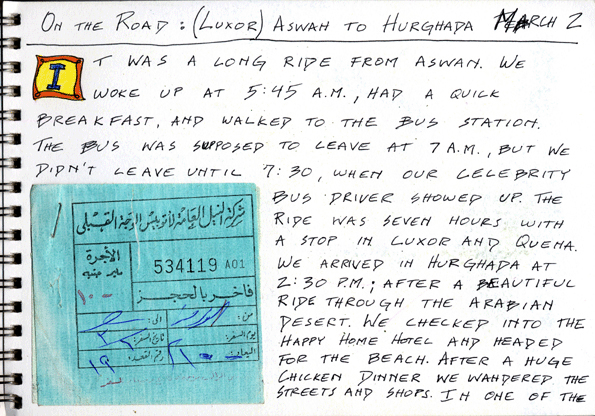 ON THE ROAD: (LUXOR) ASWAN TO HURGHADA MARCH 2
IT WAS A LONG RIDE FROM ASWAN. WE
WOKE UP AT 5:45 A.M., HAD A QUICK
BREAKFAST, AND WALKED TO THE BUS STATION.
THE BUS WAS SUPPOSED TO LEAVE AT 7 A.M., BUT WE
DIDN'T LEAVE UNTIL 7:30, WHEN OUR CELEBRITY
BUS DRIVER SHOWED UP. THE
RIDE WAS SEVEN HOURS WITH
A STOP IN LUXOR AND QUENA.
WE ARRIVED IN HURGHADA AT
2:30 P.M.; AFTER A BEAUTIFUL
RIDE THROUGH THE ARABIAN
DESERT. WE CHECKED INTO THE
HAPPY HOME HOTEL AND HEADED
FOR THE BEACH. AFTER A HUGE
CHICKEN DINNER WE WANDERED THE
STREETS AND SHOPS. IN ONE OF THE
شركة النيل العامة لأتوبيس الوجه القبلى
الأجرة
مليم جنيه
534119 A01
فاخر بالحجز
من: الى:
يوم السفر: تاريخ السفر:
رقم المقعد: ١٩
السفر